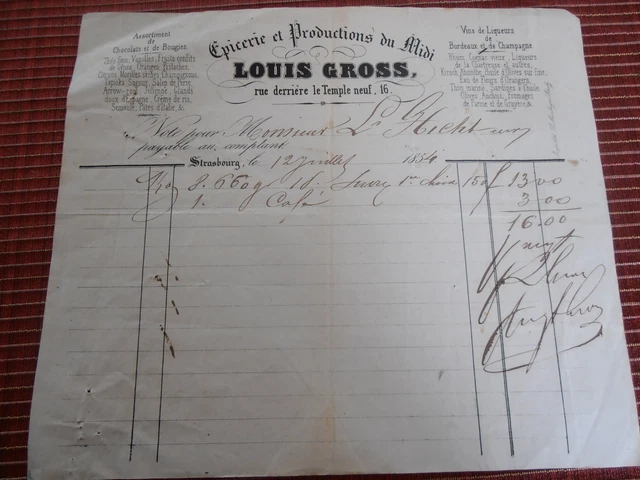 Assortiment
de
Chocolats et de Bougies.
Thés fins, Vanilles, Fruits confits
Citrons
Tapioka Sagou, Salep de Perse,
Arrow-root Glands
doux d'Espagne, Crème de riz,
Semoule, Pâtes d'Italie, &c.
Epicerie et Productions du Midi
LOUIS GROSS,
rue derrière le Temple neuf, 16.
Vins de Liqueurs
de
Bordeaux et de Champagne
Rhum, Cognac vieux, Liqueurs
de la Chartreuse et autres,
Kirsch, Absinthe, Huile d'Olives sur fine,
Eau de fleurs d'Oranger,
Thon mariné, Sardines à l'huile,
Olives, Anchois, fromages
de Parme et de Gruyère, &c
Note pour Monsieur Hecht
payable au comptant.
Strasbourg, le 12 Juillet 1854
Ko 8.660g Sucre 1er choix 150f 13.00
1. Café 3.00
16.00